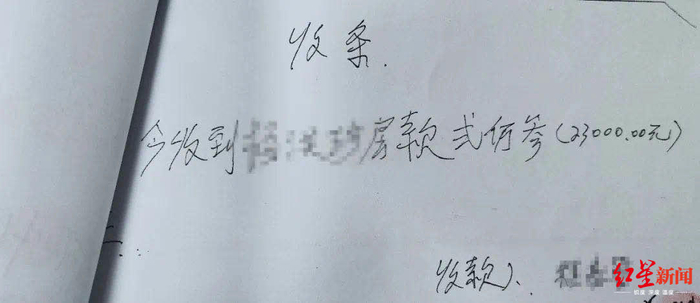 收条.
今收到房款弍仟参(23000.00元)
收款人、
红星新闻